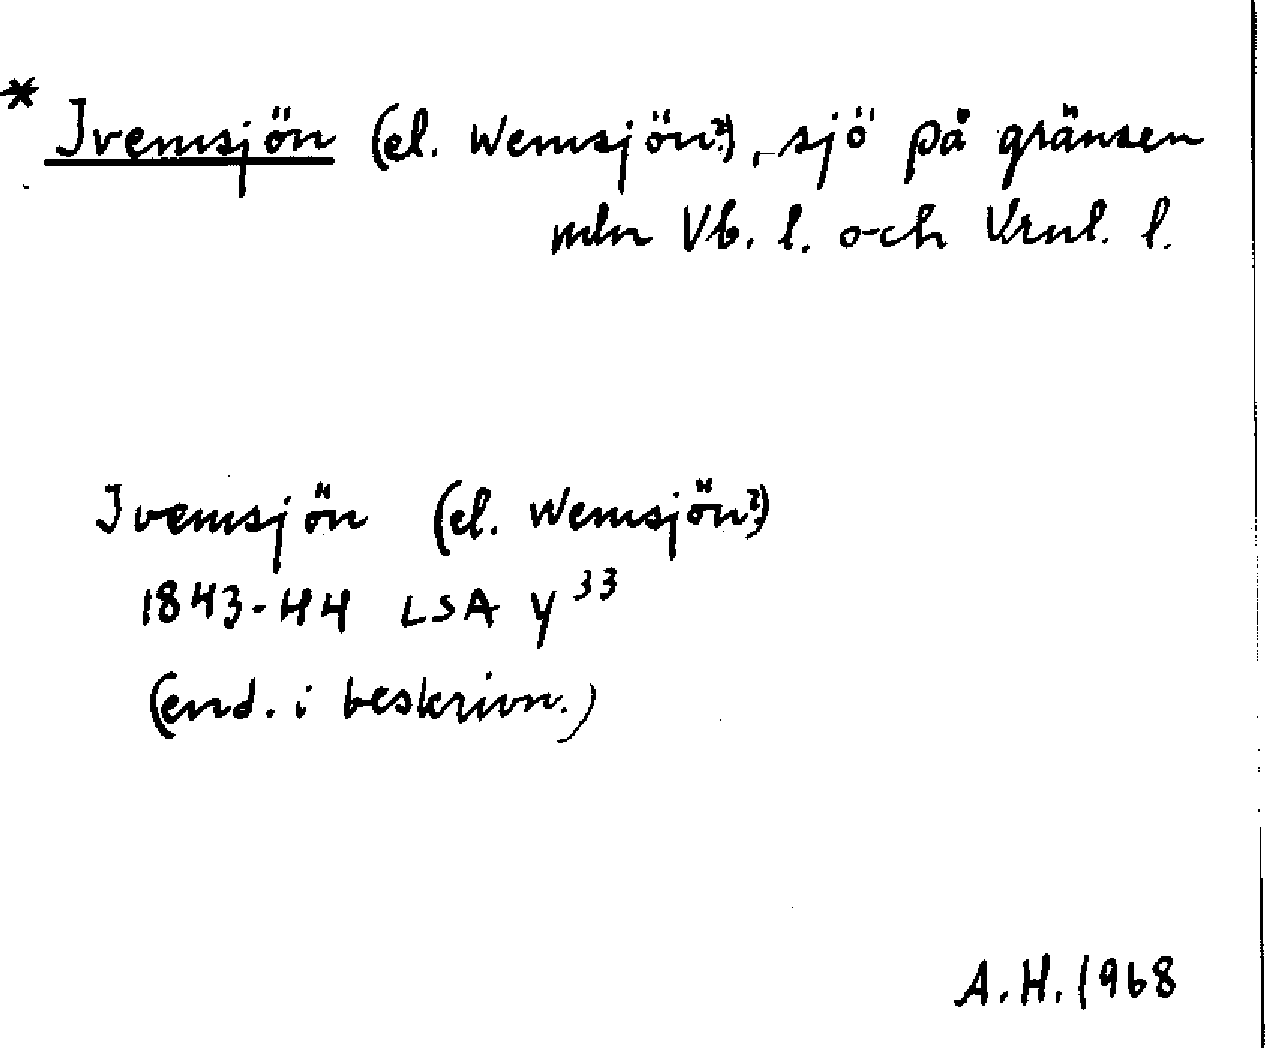 * Ivemsjön (el. Wemsjön?), sjö på gränsen
mln Vb. l. och Vrml. l.
Ivemsjön (el. Wemsjön?)
1843-44 LSA Y 33
(end. i beskrivn.)
A.H. 1968